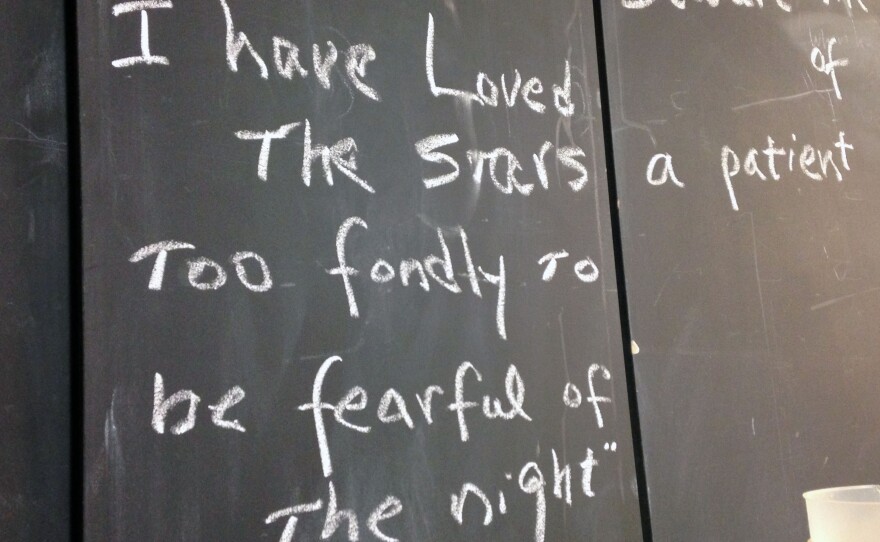 I have Loved
The Stars
Too fondly to
be fearful of
The night"
of
a patient